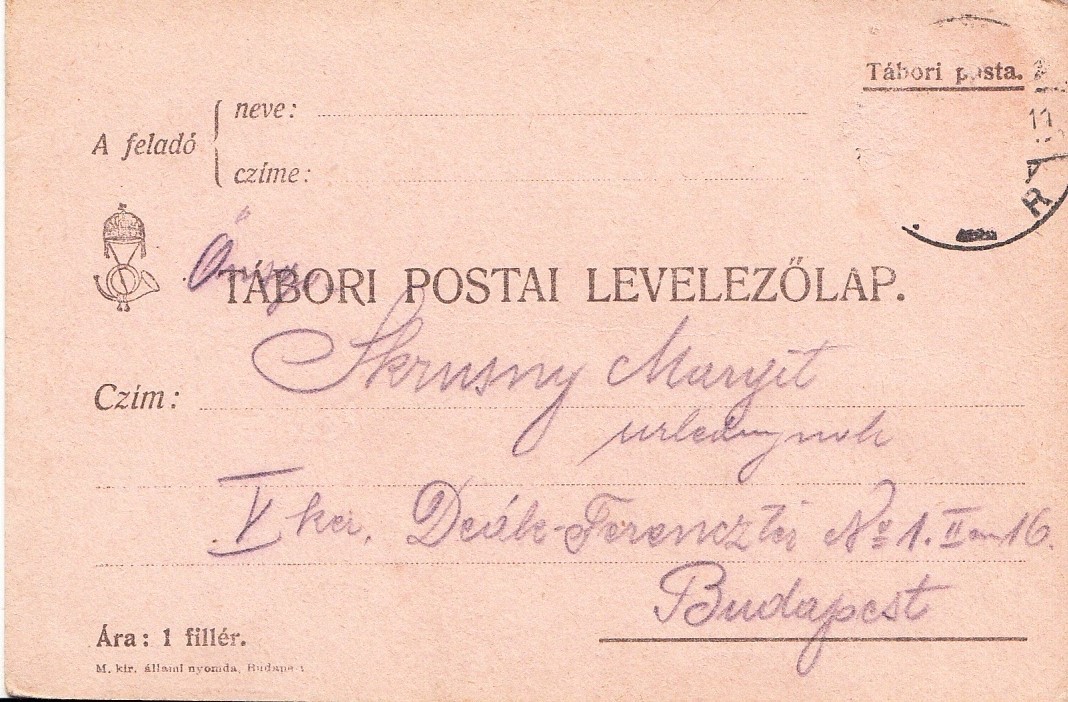 Tábori posta.
A feladó
neve:
czíme:
11
R
TÁBORI POSTAI LEVELEZŐLAP.
Skrusny Margit
Czím:
urleánynak
V ker. Deák-Ferencz tér No 1. II em 16.
Budapest
Ára: 1 fillér.
M. kir. állami nyomda, Budapest